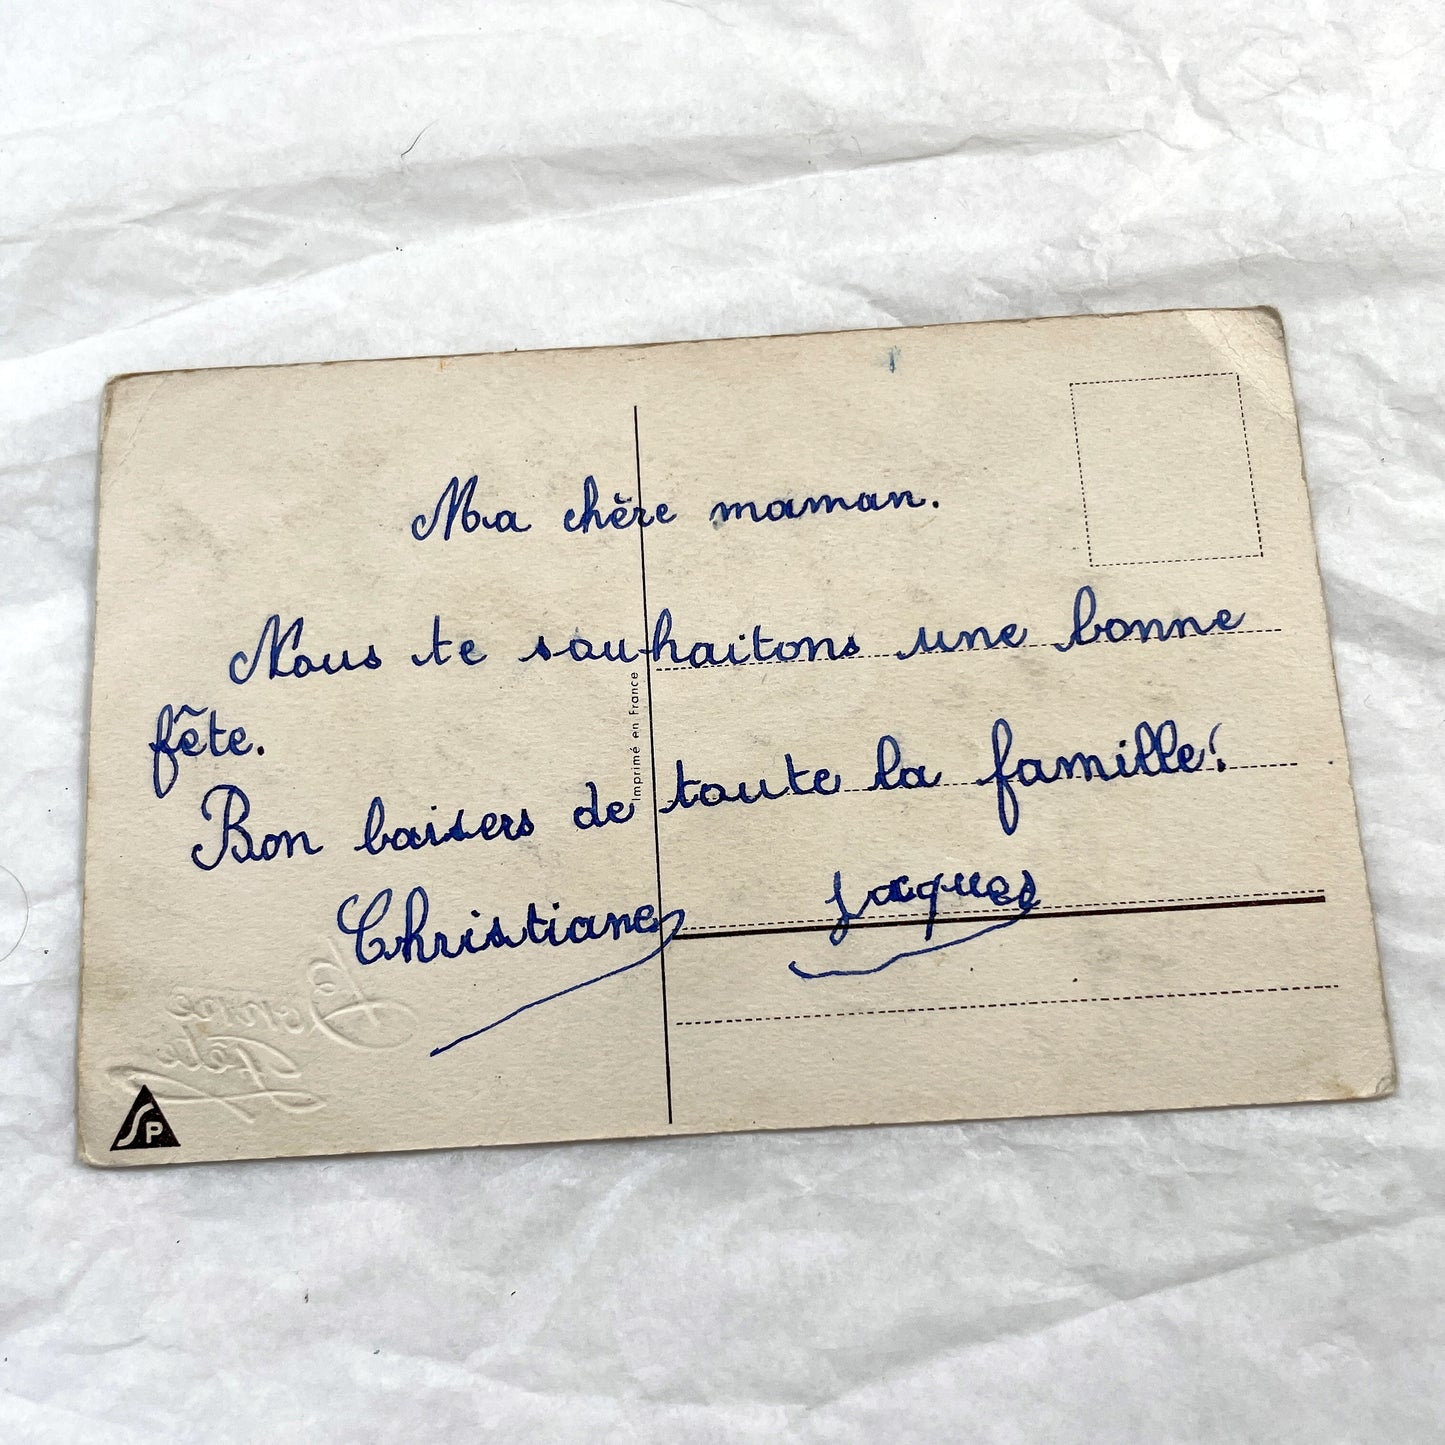 Ma chère maman.
Nous te souhaitons une bonne
fête.
Bon baisers de toute la famille!
Christiane Jacques
Imprimé en France
Bonne
Fête
SP